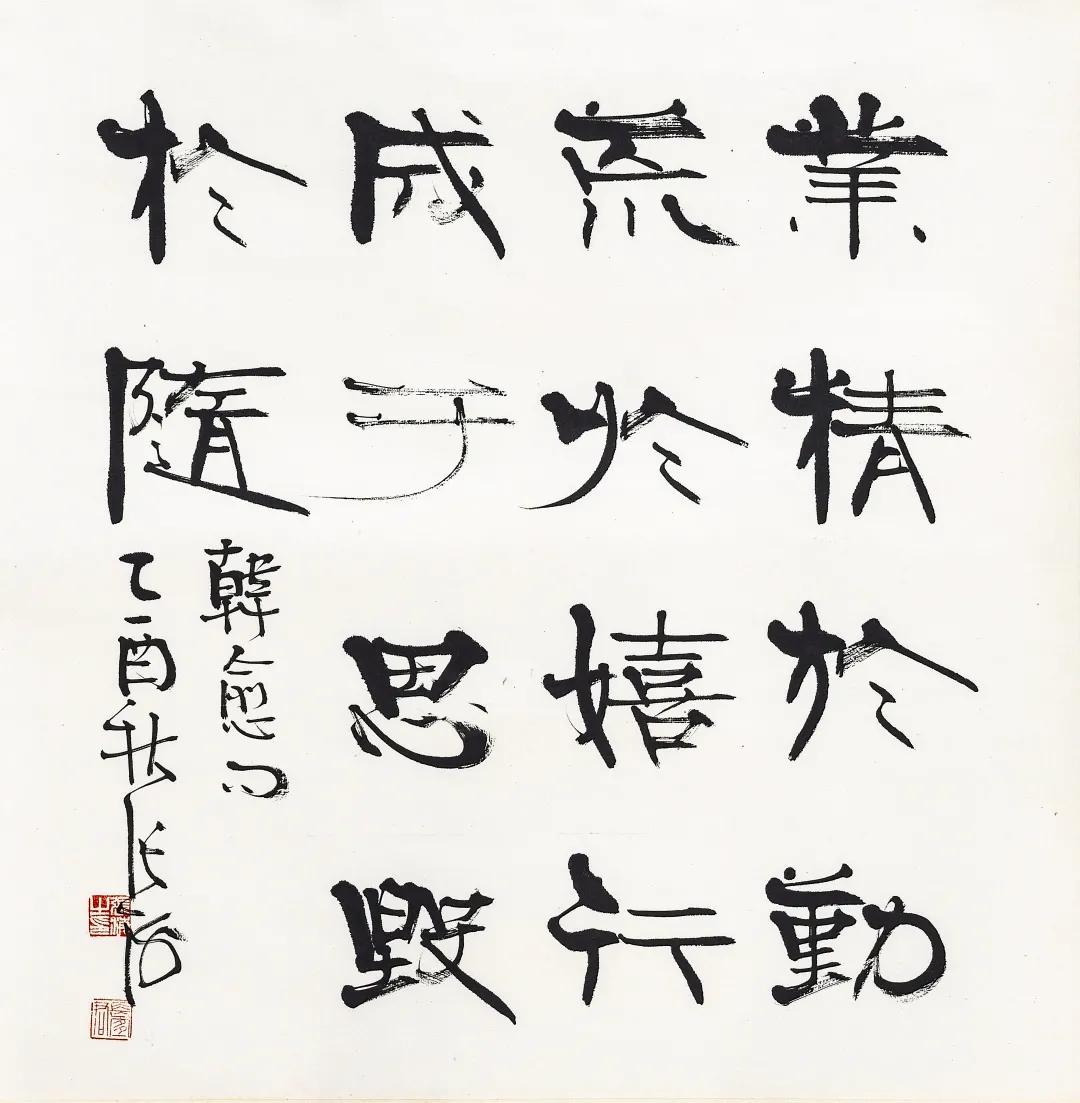 業精於勤
荒於嬉行
成于思毀
於隨
韓愈句
乙酉秋